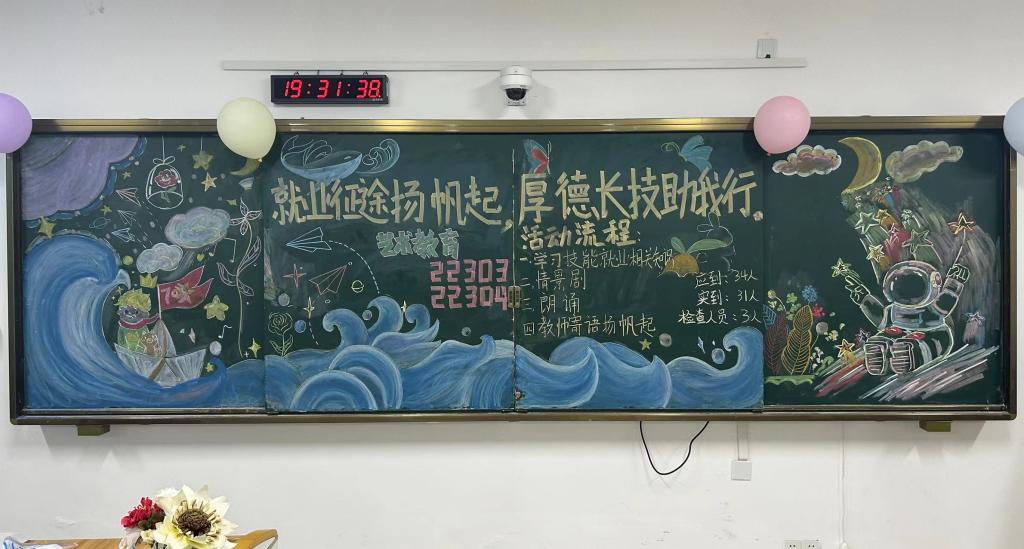 19:31:38
就业征途扬帆起，厚德长技助我行。
艺术教育
22303
22304
活动流程：
一.学习技能就业相关知识
二.情景剧
三.朗诵
四.教师寄语扬帆起
应到：34人
实到：31人
检查人员：3人